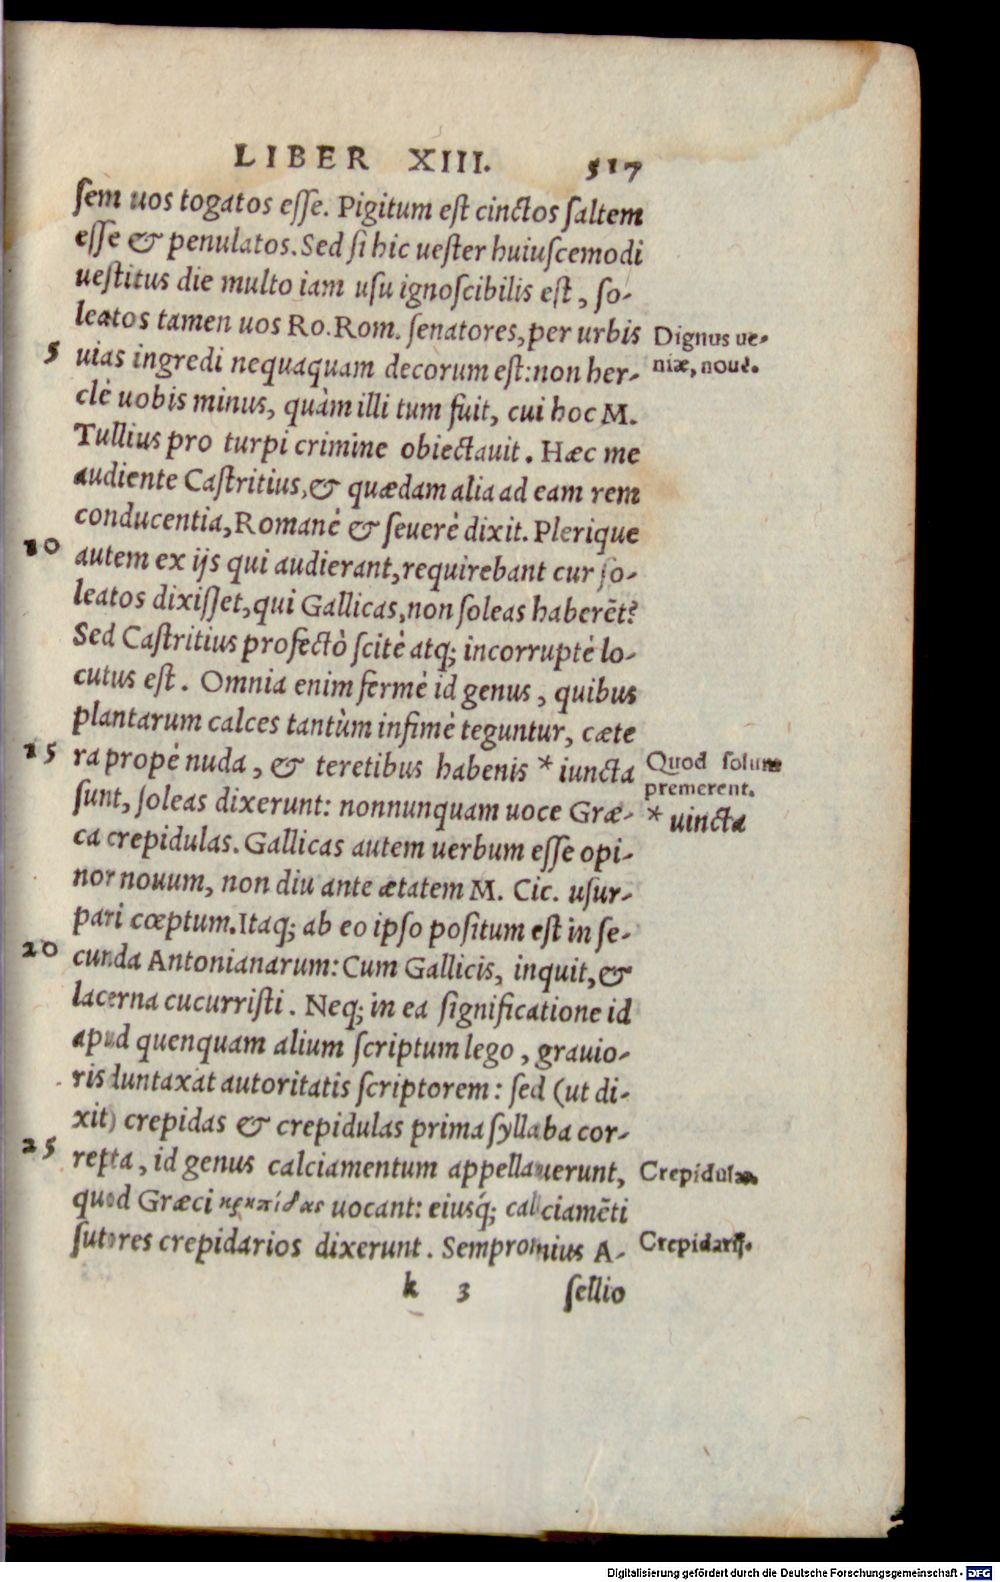 LIBER XIII. 517
sem uos togatos esse. Pigitum est cinctos saltem
esse & penulatos. Sed si hic uester huiuscemodi
uestitus die multo iam usu ignoscibilis est, so-
leatos tamen uos Ro. Rom. senatores, per urbis
Dignus ue-
5 uias ingredi nequaquam decorum est: non her-
niæ, nouè.
clè uobis minus, quàm illi tum fuit, cui hoc M.
Tullius pro turpi crimine obiectauit. Hæc me
audiente Castritius, & quædam alia ad eam rem
conducentia, Romanè & seuerè dixit. Plerique
10 autem ex ijs qui audierant, requirebant cur so-
leatos dixisset, qui Gallicas, non soleas haberēt?
Sed Castritius profectò scitè atq; incorruptè lo-
cutus est. Omnia enim fermè id genus, quibus
plantarum calces tantùm infimè teguntur, cæte
15 ra propè nuda, & teretibus habenis * iuncta
Quod solum
premerent.
sunt, soleas dixerunt: nonnunquam uoce Græ-
* uincta
ca crepidulas. Gallicas autem uerbum esse opi-
nor nouum, non diu ante ætatem M. Cic. usur-
pari cœptum. Itaq; ab eo ipso positum est in se-
20 cunda Antonianarum: Cum Gallicis, inquit, &
lacerna cucurristi. Neq; in ea significatione id
apud quenquam alium scriptum lego, grauio-
ris duntaxat autoritatis scriptorem: sed (ut di-
xit) crepidas & crepidulas prima syllaba cor-
25 repta, id genus calciamentum appellauerunt,
Crepidulæ.
quod Græci κρηπίδας uocant: eiusq́; calciamēti
sutores crepidarios dixerunt. Sempronius A-
Crepidarij.
k 3 sellio
Digitalisierung gefördert durch die Deutsche Forschungsgemeinschaft - DFG